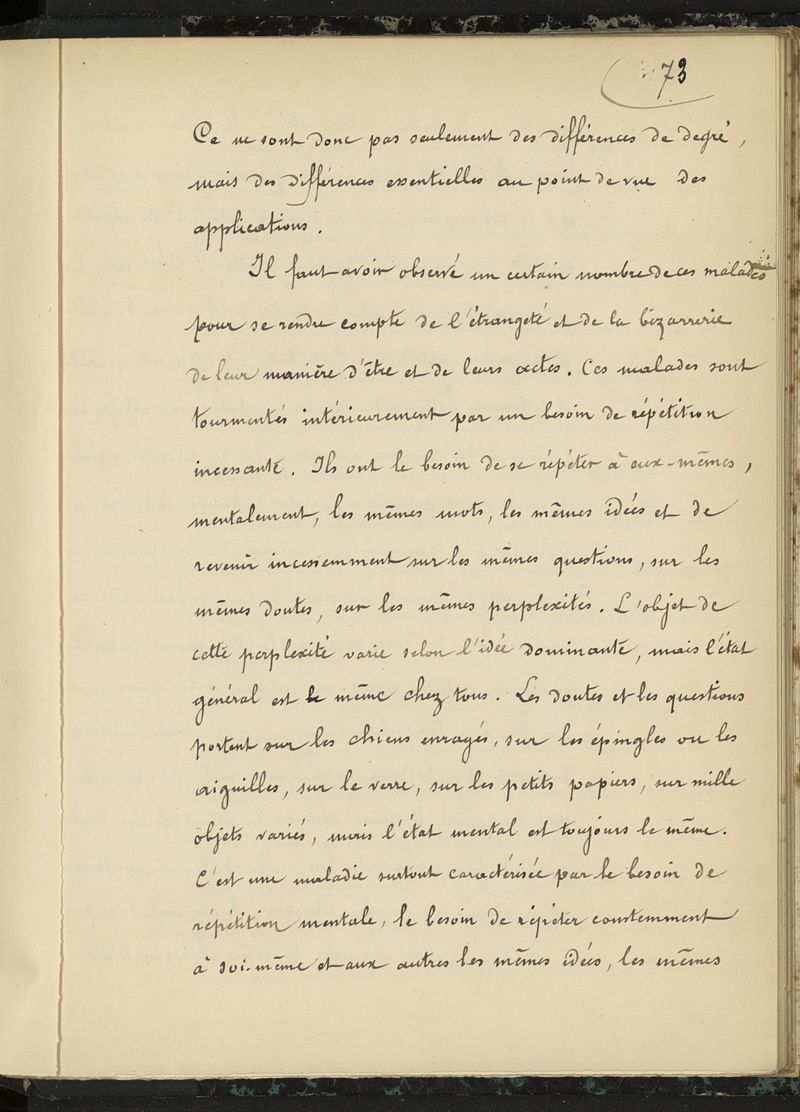 73
Ce ne sont donc pas seulement des différences de degré,
mais des différences essentielles au point de vue des
applications.
Il faut avoir observé un certain nombre de ces malades
pour se rendre compte de l'étrangeté et de la bizarrerie
de leur manière d'être et de leurs actes. Ces malades sont
tourmentés intérieurement par un besoin de répétition
incessante. Ils ont le besoin de se répéter à eux-mêmes,
mentalement, les mêmes mots, les mêmes idées et de
revenir incessemment sur les mêmes questions, sur les
mêmes doutes, sur les mêmes perplexités. L'objet de
cette perplexité varie selon l'idée dominante, mais l'état
général est le même chez tous. Les doutes et les questions
portent sur les chiens enragés, sur les épingles ou les
aiguilles, sur le verre, sur les petits papiers, sur mille
objets variés, mais l'état mental est toujours le même.
C'est une maladie surtout caractérisée par le besoin de
répétition mentale, le besoin de répéter constemment
à soi-même et aux autres les mêmes idées, les mêmes